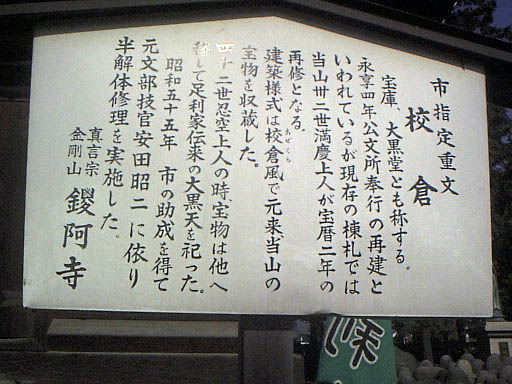 市指定重文
校倉
宝庫、大黒堂とも称する。
永享四年公文所奉行の再建と
いわれているが現存の棟札では
当山丗二世満慶上人が宝暦二年の
再修となる。
建築様式は校倉風で元来当山の
あぜくら
宝物を収蔵した。
四十二世忍空上人の時、宝物は他へ
移して足利家伝来の大黒天を祀った。
昭和五十五年 市の助成を得て
元文部技官安田昭二に依り
半解体修理を実施した。
真言宗
金剛山
鑁阿寺